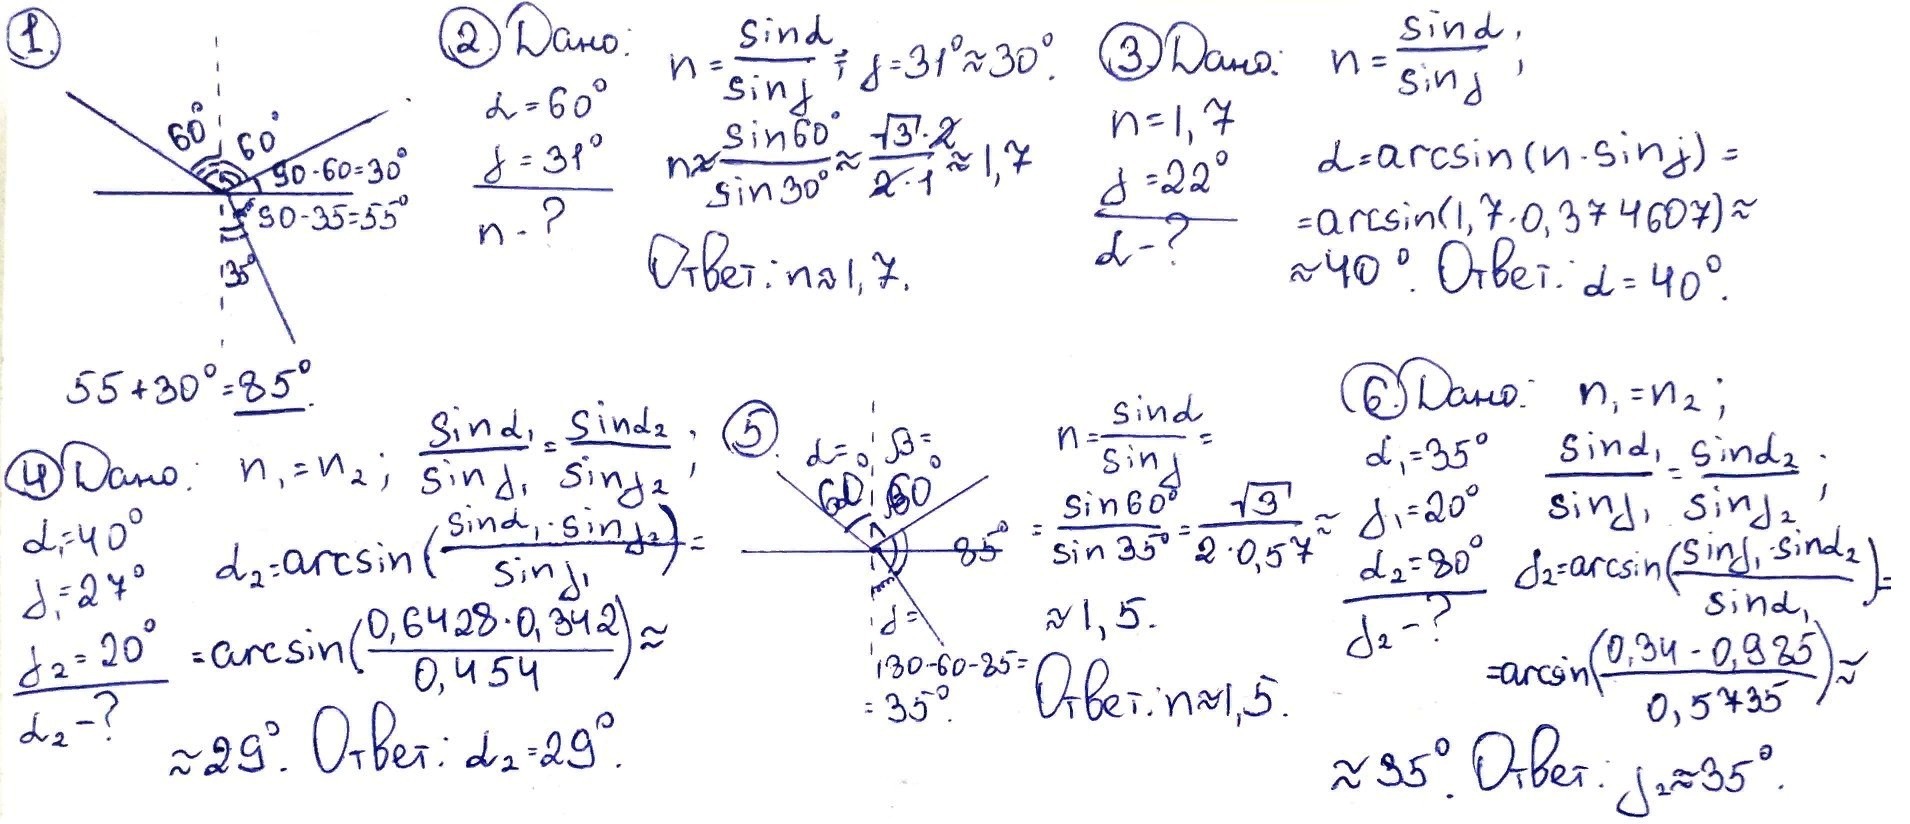 1.
60° 60°
90-60=30°
90-35=55°
35°
55+30°=85°.
2. Дано:
α=60°
γ=31°
n-?
n=sinα/sinγ; γ=31°≈30°.
n≈sin60°/sin30°≈√3·2/2·1≈1,7
Ответ: n≈1,7.
3. Дано:
n=1,7
γ=22°
α-?
n=sinα/sinγ;
α=arcsin(n·sinγ)=
=arcsin(1,7·0,374607)≈
≈40°. Ответ: α=40°.
4. Дано:
α₁=40°
γ₁=27°
γ₂=20°
α₂-?
n₁=n₂; sinα₁/sinγ₁=sinα₂/sinγ₂;
α₂=arcsin(sinα₁·sinγ₂/sinγ₁)=
=arcsin(0,6428·0,342/0,454)≈
≈29°. Ответ: α₂=29°.
5.
α= β=
60° 60°
85°
γ=
180-60-85=
=35°.
n=sinα/sinγ=
=sin60°/sin35°=√3/2·0,57≈
≈1,5.
Ответ: n≈1,5.
6. Дано:
α₁=35°
γ₁=20°
α₂=80°
γ₂-?
n₁=n₂;
sinα₁/sinγ₁=sinα₂/sinγ₂;
γ₂=arcsin(sinγ₁·sinα₂/sinα₁)=
=arcsin(0,34-0,985/0,5735)≈
≈35°. Ответ: γ₂≈35°.